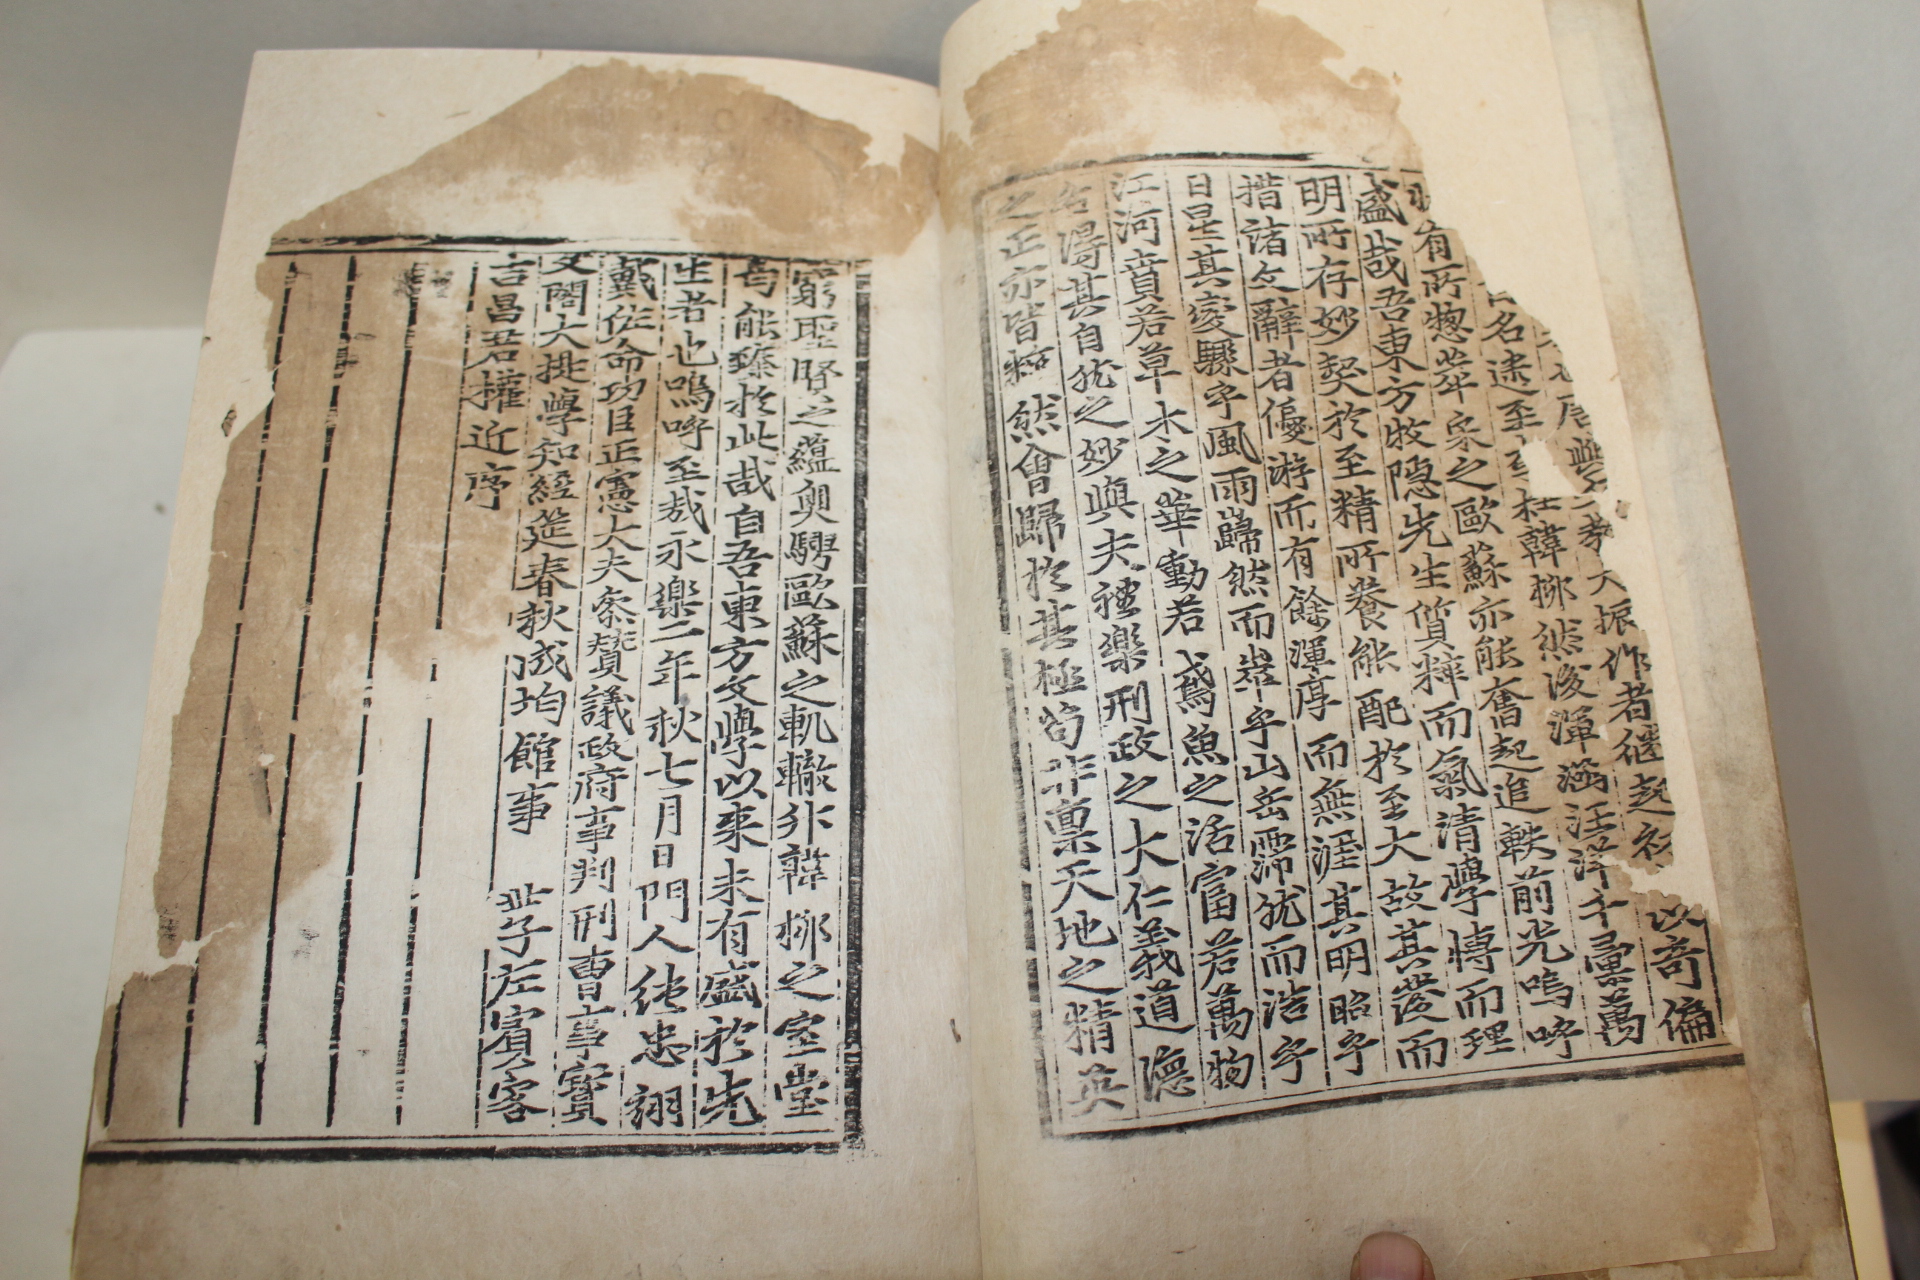 唐興文教大振作者繼起以奇偏
名逮至李杜韓柳然後渾涵汪洋千彙萬
狀有所摠萃宋之歐蘇亦能奮起追軼前光嗚呼
盛哉吾東方牧隱先生質粹而氣清學博而理
明所存妙契於至精所養能配於至大故其發而
措諸文辭者優游而有餘渾厚而無涯其明昭乎
日星其變驟乎風雨巋然而崒乎山岳霈猶而浩乎
江河賁若草木之華動若鳶魚之活富若萬物
各得其自猶之妙與夫禮樂刑政之大仁義道德
之正亦皆粹然會歸於其極苟非稟天地之精英
窮聖賢之蘊奧騁歐蘇之軌轍升韓柳之室堂
曷能臻於此哉自吾東方文學以來未有盛於先
生者也嗚呼至哉永樂二年秋七月日門人純忠翊
戴佐命功臣正憲大夫參贊議政府事判刑曹事寶
文閣大提學知經筵春秋成均館事 世子左賓客
吉昌君權近序